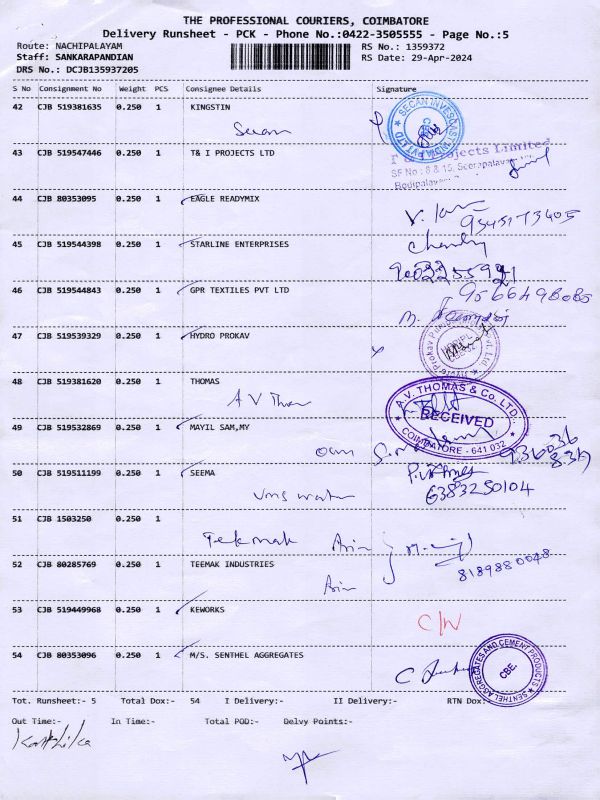 THE PROFESSIONAL COURIERS, COIMBATORE
Delivery Runsheet - PCK - Phone No.:0422-3505555 - Page No.:5
Route: NACHIPALAYAM RS No.: 1359372
Staff: SANKARAPANDIAN RS Date: 29-Apr-2024
DRS No.: DCJB135937205
S No Consignment No Weight PCS Consignee Details Signature
42 CJB 519381635 0.250 1 KINGSTIN
43 CJB 519547446 0.250 1 T& I PROJECTS LTD
T & I Projects Limited
SF No : 8 & 15, Seerapalayam
44 CJB 80353095 0.250 1 EAGLE READYMIX
9345173405
45 CJB 519544398 0.250 1 STARLINE ENTERPRISES
46 CJB 519544843 0.250 1 GPR TEXTILES PVT LTD
9566498085
47 CJB 519539329 0.250 1 HYDRO PROKAV
48 CJB 519381620 0.250 1 THOMAS
A V Thom
A.V. THOMAS & Co. LTD.
RECEIVED
COIMBATORE - 641 032
49 CJB 519532869 0.250 1 MAYIL SAM,MY
50 CJB 519511199 0.250 1 SEEMA
6383250104
51 CJB 1503250 0.250 1
Tekmak
52 CJB 80285769 0.250 1 TEEMAK INDUSTRIES
8189880048
53 CJB 519449968 0.250 1 KEWORKS
C/W
54 CJB 80353096 0.250 1 M/S. SENTHEL AGGREGATES
SENTHEL AGGREGATES AND CEMENT PRODUCTS
CBE.
Tot. Runsheet:- 5 Total Dox:- 54 I Delivery:- II Delivery:- RTN Dox:-
Out Time:- In Time:- Total POD:- Delvy Points:-